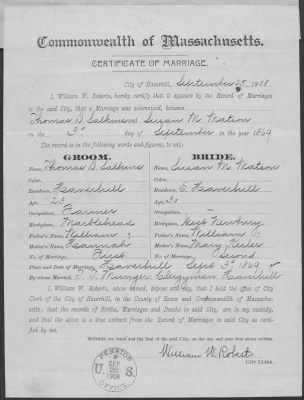 Commonwealth of Massachusetts.
CERTIFICATE OF MARRIAGE.
City of Haverhill, September 25, 1908.
I, William W. Roberts, hereby certify that it appears by the Record of Marriages
in the said City, that a Marriage was solemnized, between
Thomas D. and Susan M. Watson
on the 3d day of September in the year 1869
The record is in the following words and figures, to wit:
GROOM. BRIDE.
Name, Thomas D. Name, Susan M. Watson
Color, Color,
Residence, Haverhill Residence, E. Haverhill
Age, 23 Age, 30
Occupation, Farmer Occupation,
Birthplace, Marblehead Birthplace, West Newbury
Father's Name, William Father's Name, William
Mother's Name, Hannah Mother's Name, Mary
No. of Marriage, First No. of Marriage, Second
Place and Date of Marriage, Haverhill Sept. 3d, 1869
By whom Married, Clergyman, Haverhill
I, William W. Roberts, above named, depose and say, that I hold the office of City
Clerk of the City of Haverhill, in the County of Essex and Commonwealth of Massachu-
setts; that the records of Births, Marriages and Deaths in said City, are in my custody,
and that the above is a true extract from the Record of Marriages in said City as certi-
fied by me.
Witness my hand and the Seal of the said City, on the day and year first above written.
William W. Roberts
CITY CLERK.
PENSION
U.S.
SEP
1908
OFFICE